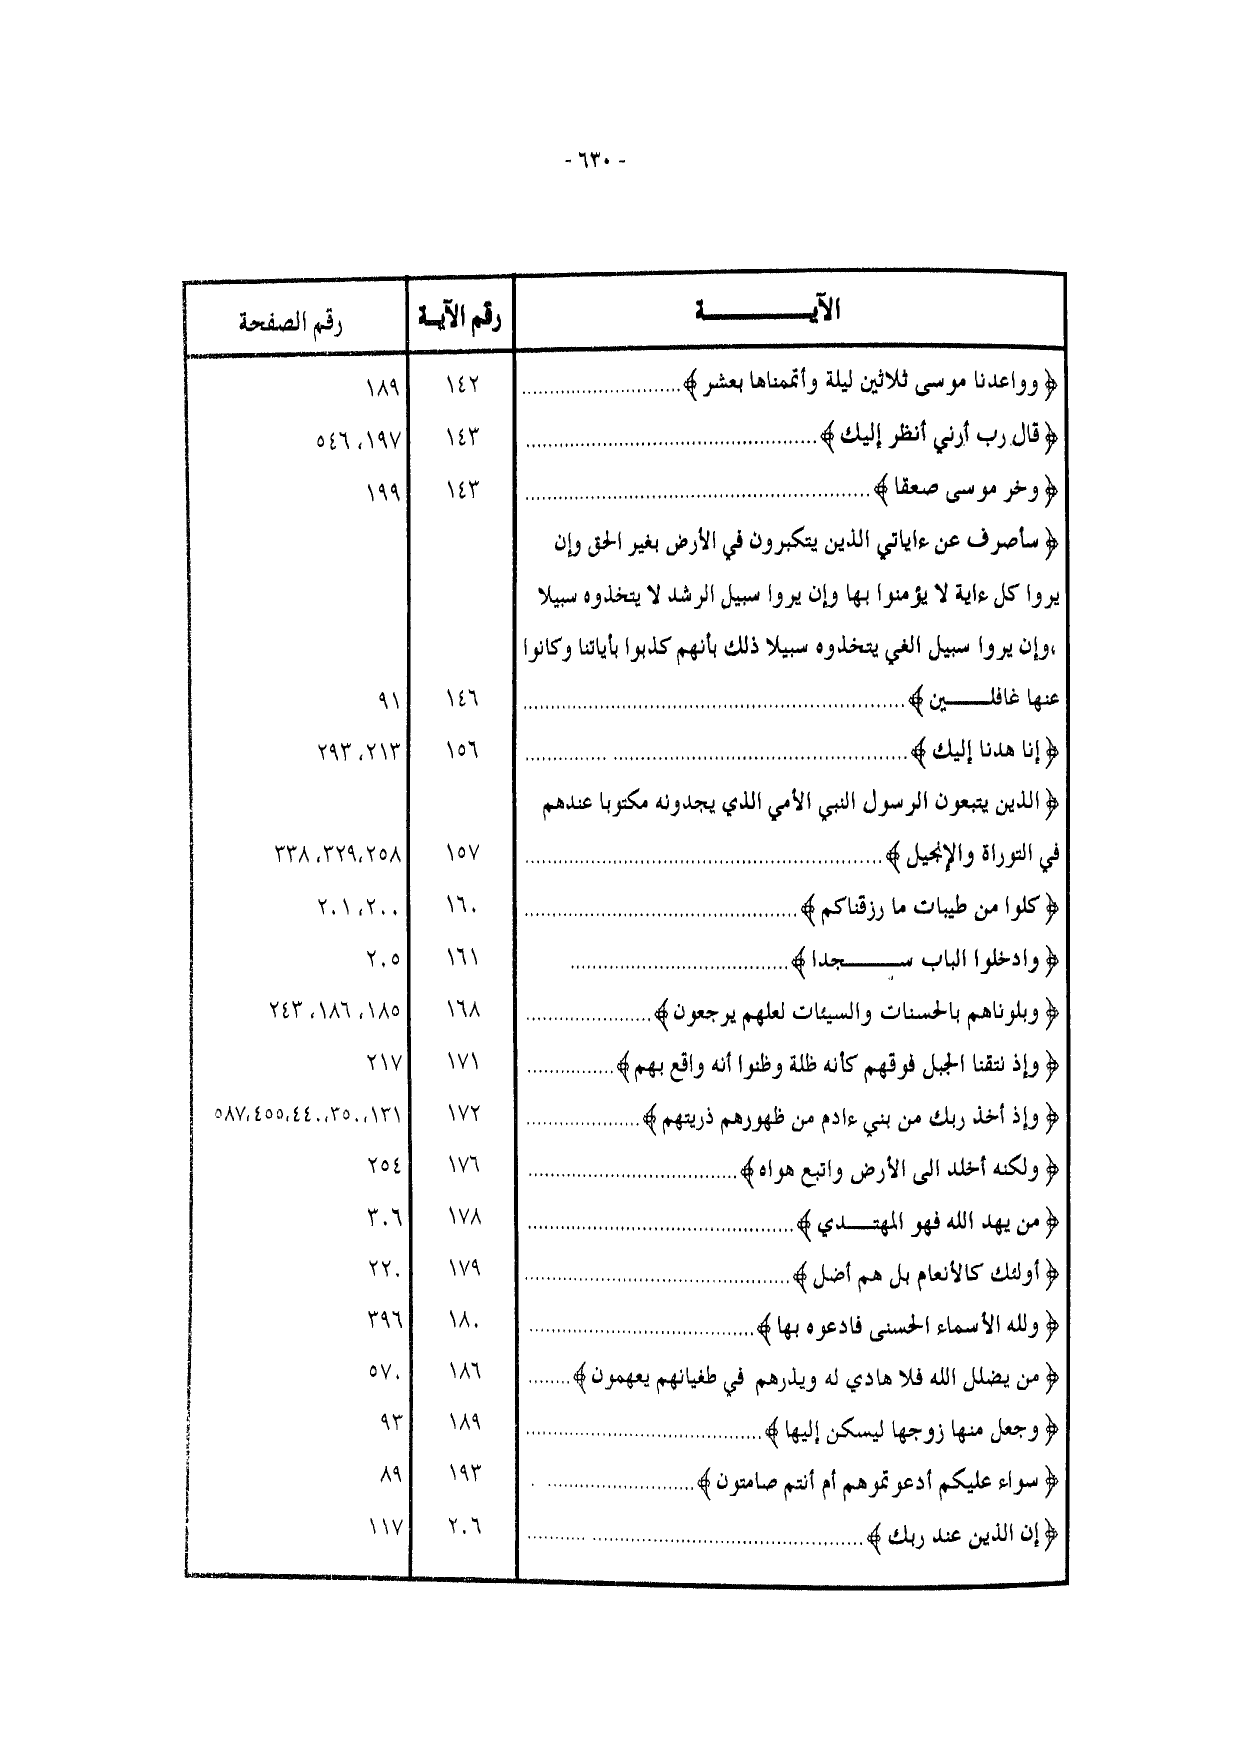 - ٦٣٠ -
الآيــــــــــة رقم الآيــة رقم الصفحة
﴿ وواعدنا موسى ثلاثين ليلة وأتممناها بعشر ﴾............................. ١٤٢ ١٨٩
﴿ قال رب أرني أنظر إليك ﴾..................................................... ١٤٣ ١٩٧، ٥٤٦
﴿ وخر موسى صعقا ﴾............................................................... ١٤٣ ١٩٩
﴿ سأصرف عن ءاياتي الذين يتكبرون في الأرض بغير الحق وإن
يروا كل ءاية لا يؤمنوا بها وإن يروا سبيل الرشد لا يتخذوه سبيلا
،وإن يروا سبيل الغي يتخذوه سبيلا ذلك بأنهم كذبوا بأياتنا وكانوا
عنها غافلــــــين ﴾..................................................................... ١٤٦ ٩١
﴿ إنا هدنا إليك ﴾..................................................................... ١٥٦ ٢١٣، ٢٩٣
﴿ الذين يتبعون الرسول النبي الأمي الذي يجدونه مكتوبا عندهم
في التوراة والإنجيل ﴾................................................................. ١٥٧ ٢٥٨،٣٢٩، ٣٣٨
﴿ كلوا من طيبات ما رزقناكم ﴾................................................. ١٦٠ ٢٠٠، ٢٠١
﴿ وادخلوا الباب ســــــجدا ﴾........................................ ١٦١ ٢٠٥
﴿ وبلوناهم بالحسنات والسيئات لعلهم يرجعون ﴾....................... ١٦٨ ١٨٥، ١٨٦، ٢٤٣
﴿ وإذ نتقنا الجبل فوقهم كأنه ظلة وظنوا أنه واقع بهم ﴾................ ١٧١ ٢١٧
﴿ وإذ أخذ ربك من بني ءادم من ظهورهم ذريتهم ﴾..................... ١٧٢ ١٣١، ٣٥٠، ٤٤٠،٤٥٥،٥٨٧
﴿ ولكنه أخلد الى الأرض واتبع هواه ﴾....................................... ١٧٦ ٢٥٤
﴿ من يهد الله فهو المهتــــدي ﴾................................................. ١٧٨ ٣٠٦
﴿ أولئك كالأنعام بل هم أضل ﴾................................................. ١٧٩ ٢٢٠
﴿ ولله الأسماء الحسنى فادعوه بها ﴾......................................... ١٨٠ ٣٩٦
﴿ من يضلل الله فلا هادي له ويذرهم في طغيانهم يعهمون ﴾........ ١٨٦ ٥٧٠
﴿ وجعل منها زوجها ليسكن إليها ﴾........................................... ١٨٩ ٩٣
﴿ سواء عليكم أدعوتموهم أم أنتم صامتون ﴾........................... ١٩٣ ٨٩
﴿ إن الذين عند ربك ﴾............................................................. ٢٠٦ ١١٧